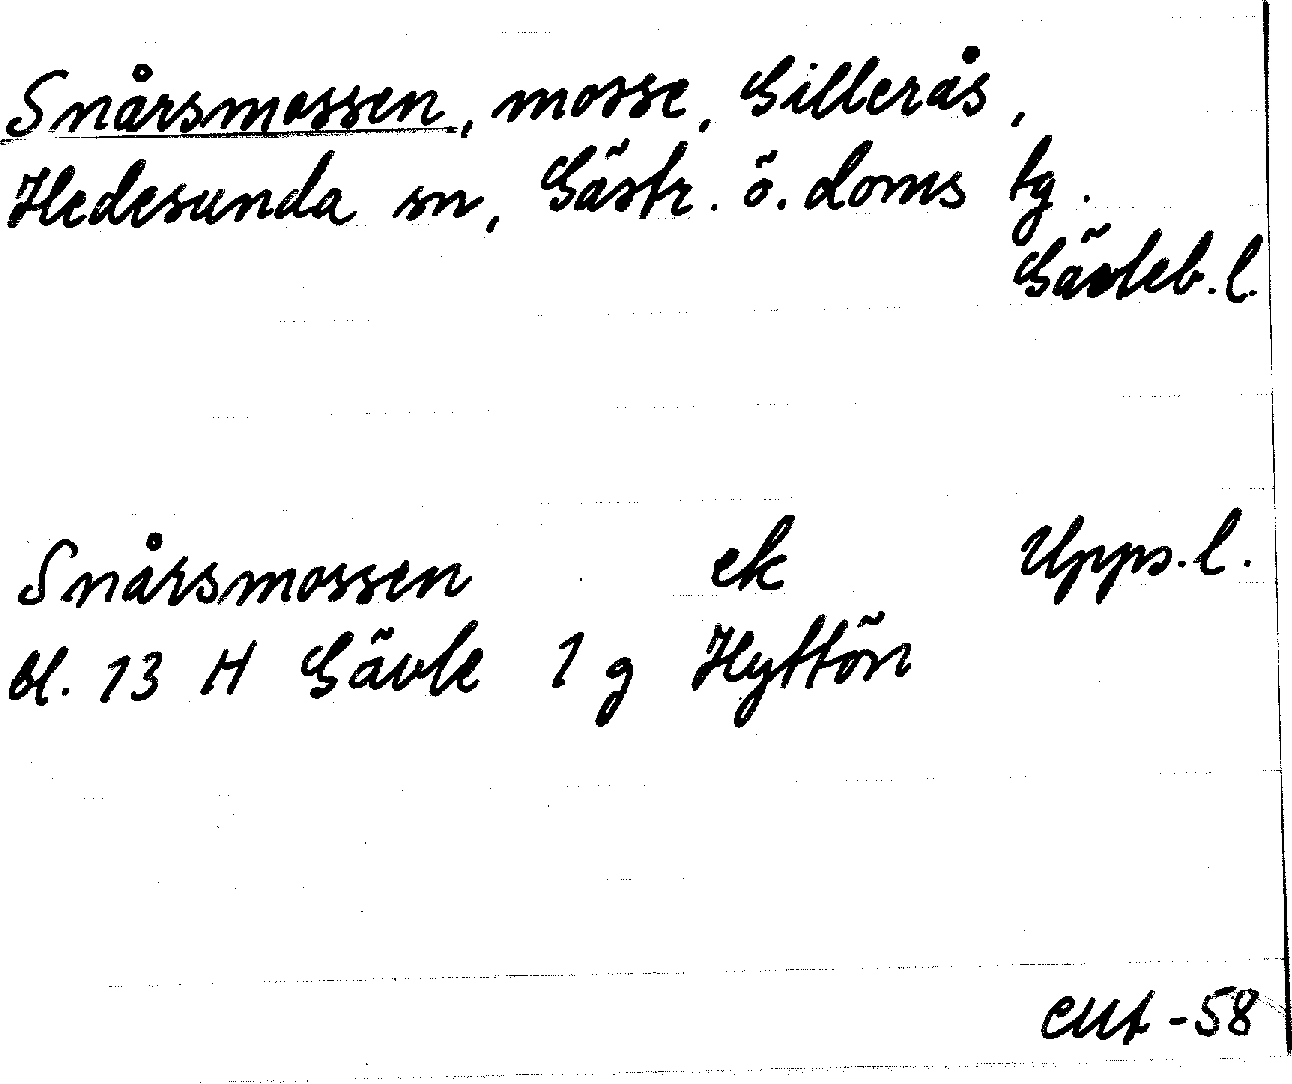 Snårsmossen, mosse, Gillerås,
Hedesunda sn, Gästr. ö. doms tg.
Gävleb. l.
Snårsmossen ek Upps. l.
bl. 13 H Gävle 1 g Hyttön
-58